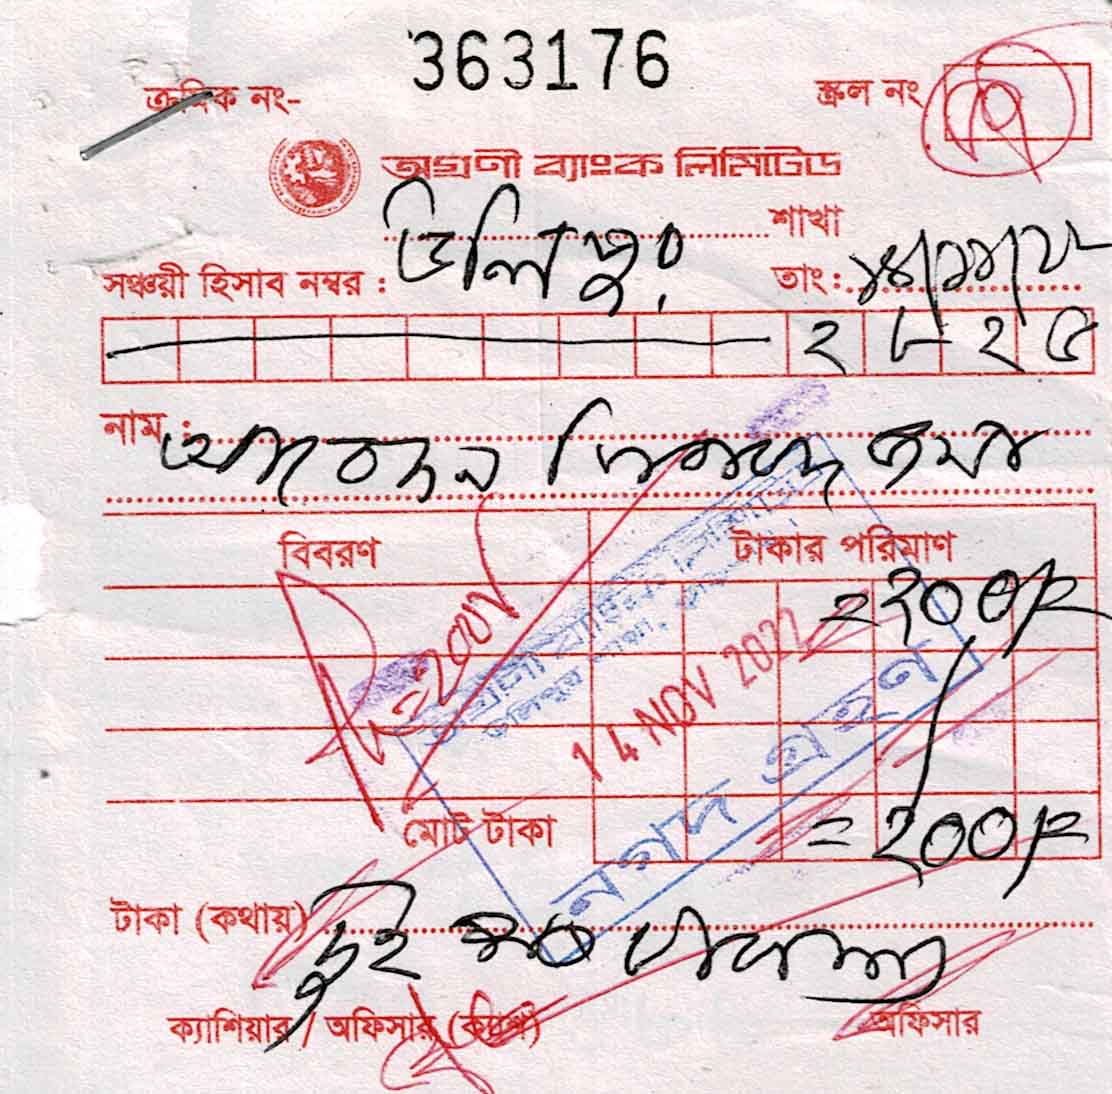 363176
ক্রমিক নং-
স্ক্রল নং
অগ্রণী ব্যাংক লিমিটেড
উলিপুর শাখা
সঞ্চয়ী হিসাব নম্বর :
তাং:
২ ৮ ২ ৫
নাম :
বিবরণ টাকার পরিমাণ
= ২০০/=
14 NOV 2022
নগদ গ্রহণ
মোট টাকা = ২০০/=
টাকা (কথায়) দুই শত টাকা মাত্র
ক্যাশিয়ার / অফিসার (ক্যাশ) অফিসার